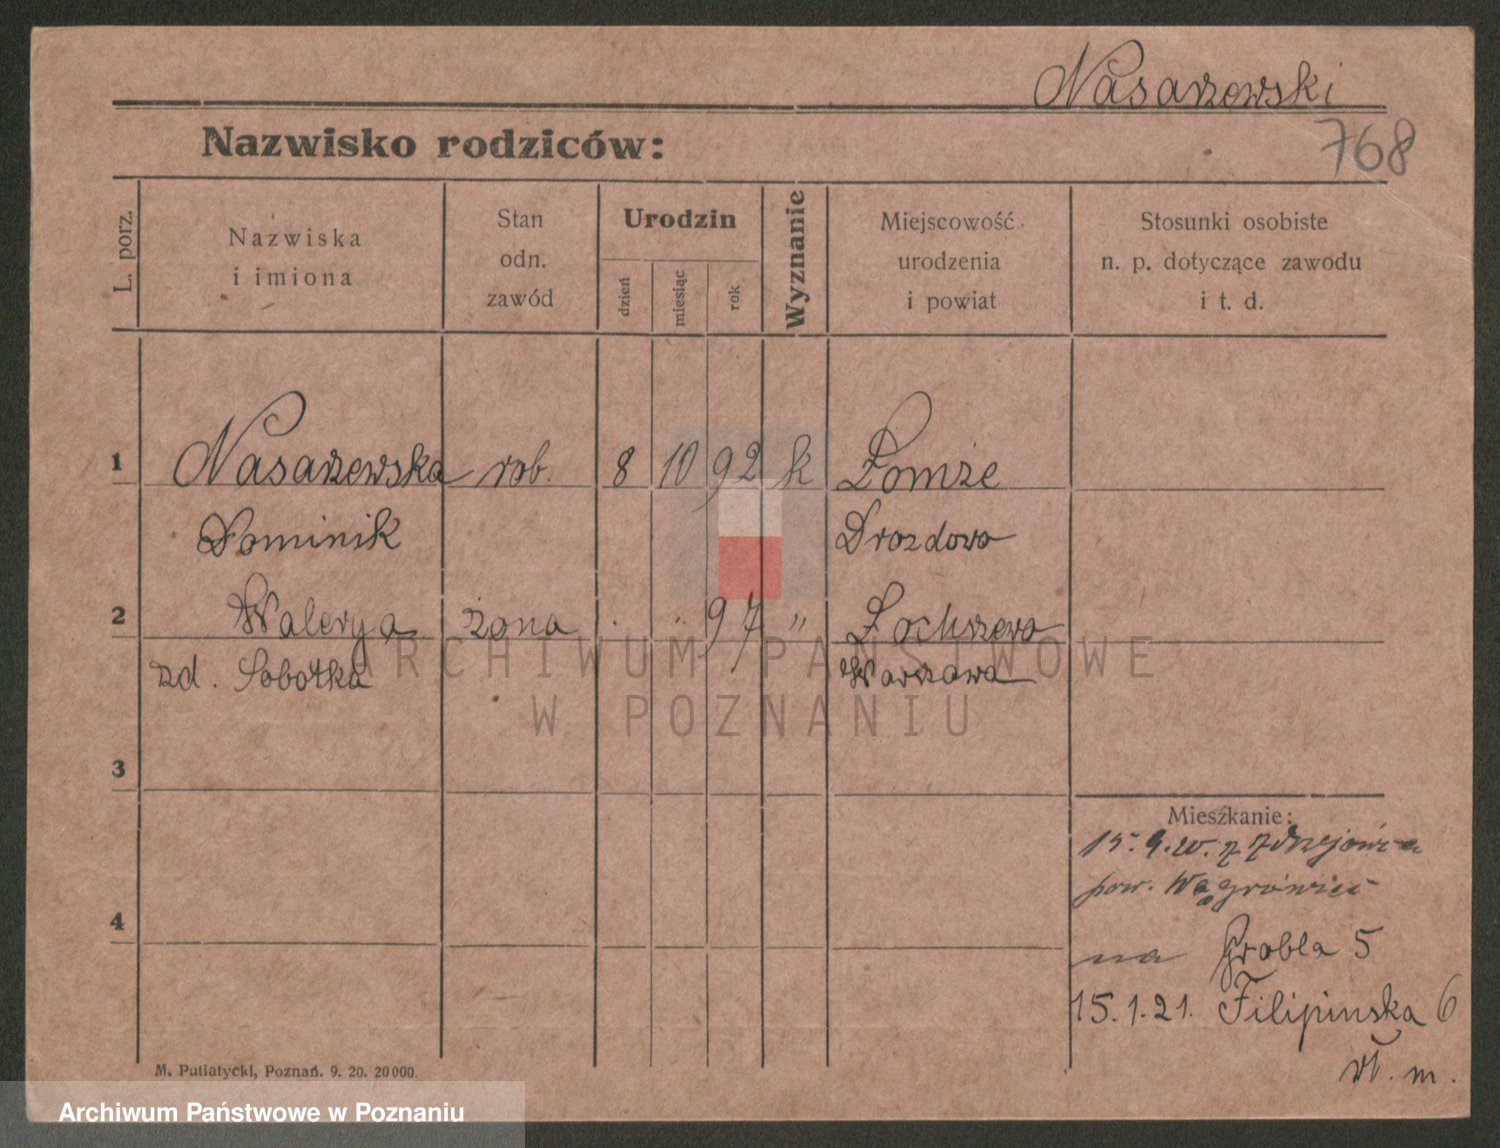 Nasarzewski
768
Nazwisko rodziców:
L. porz.
Nazwiska
i imiona
Stan
odn.
zawód
Urodzin
dzień
miesiąc
rok
Wyznanie
Miejscowość
urodzenia
i powiat
Stosunki osobiste
n. p. dotyczące zawodu
i t. d.
1 Nasarzewska rob. 8 10 92 k Łomże
Dominik Drozdowo
2 Walerya żona . . 97 " Lochszewo
zd. Sobotka Warszawa
3
4
Mieszkanie:
pow. Wągrówiec
na Grobla 5
15.1.21. Filipinska 6
M. Putiatycki, Poznań. 9. 20. 20000.
ARCHIWUM PAŃSTWOWE
W POZNANIU
Archiwum Państwowe w Poznaniu